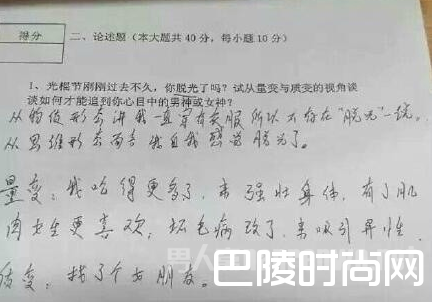 得分
二、论述题（本大题共40分，每小题10分）
1、光棍节刚刚过去不久，你脱光了吗？试从量变与质变的视角谈
谈如何才能追到你心目中的男神或女神？
从物质形态讲我一直穿有衣服所以不存在“脱光”一说。
从思维形态而言我自我感觉脱光了。
量变：我吃得更多了，来强壮身体，有了肌
肉女生更喜欢，坏毛病改了，来吸引异性．
质变：找了个女朋友。
巴陵时尚网